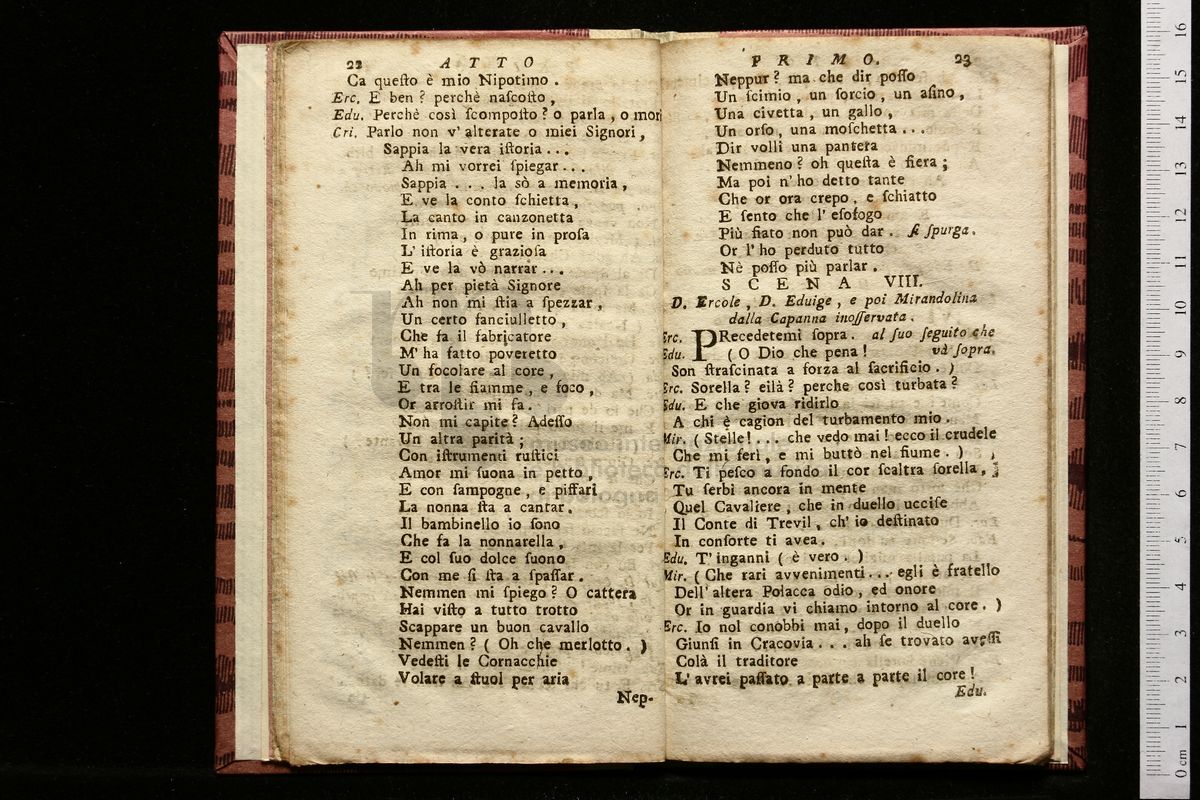 22 ATTO
Ca queſto è mio Nipotimo.
Erc. E ben? perchè naſcoſto,
Edu. Perchè così ſcompoſto? o parla, o mori
Cri. Parlo non v'alterate o miei Signori,
Sappia la vera iſtoria...
Ah mi vorrei ſpiegar...
Sappia... la sò a memoria,
E ve la conto ſchietta,
La canto in canzonetta
In rima, o pure in proſa
L'iſtoria è grazioſa
E ve la vò narrar...
Ah per pietà Signore
Ah non mi ſtia a ſpezzar,
Un certo fanciulletto,
Che fa il fabricatore
M'ha fatto poveretto
Un focolare al core,
E tra le fiamme, e foco,
Or arroſtir mi fa.
Non mi capite? Adeſſo
Un altra parità;
Con iſtrumenti ruſtici
Amor mi ſuona in petto,
E con ſampogne, e piffari
La nonna ſta a cantar.
Il bambinello io ſono
Che fa la nonnarella,
E col ſuo dolce ſuono
Con me ſi ſta a ſpaſſar.
Nemmen mi ſpiego? O cattera
Hai viſto a tutto trotto
Scappare un buon cavallo
Nemmen? (Oh che merlotto.)
Vedeſti le Cornacchie
Volare a ſtuol per aria
Nep-
PRIMO. 23
Neppur? ma che dir poſſo
Un ſcimio, un ſorcio, un aſino,
Una civetta, un gallo,
Un orſo, una moſchetta...
Dir volli una pantera
Nemmeno? oh queſta è fiera;
Ma poi n'ho detto tante
Che or ora crepo, e ſchiatto
E ſento che l'eſofogo
Più fiato non può dar. ſi ſpurga.
Or l'ho perduto tutto
Nè poſſo più parlar.
SCENA VIII.
D. Ercole, D. Eduige, e poi Mirandolina
dalla Capanna inoſſervata.
Erc. PRecedetemi ſopra. al ſuo ſeguito che
Edu. (O Dio che pena! và ſopra.
Son ſtraſcinata a forza al ſacrificio.)
Erc. Sorella? eilà? perche così turbata?
Edu. E che giova ridirlo
A chi è cagion del turbamento mio.
Mir. (Stelle!... che vedo mai! ecco il crudele
Che mi ferì, e mi buttò nel fiume.)
Erc. Ti peſco a fondo il cor ſcaltra ſorella,
Tu ſerbi ancora in mente
Quel Cavaliere, che in duello ucciſe
Il Conte di Trevil, ch'io deſtinato
In conſorte ti avea.
Edu. T'inganni (è vero.)
Mir. (Che rari avvenimenti... egli è fratello
Dell'altera Polacca odio, ed onore
Or in guardia vi chiamo intorno al core.)
Erc. Io nol conobbi mai, dopo il duello
Giunſi in Cracovia... ah ſe trovato aveſſi
Colà il traditore
L'avrei paſſato a parte a parte il core!
Edu.